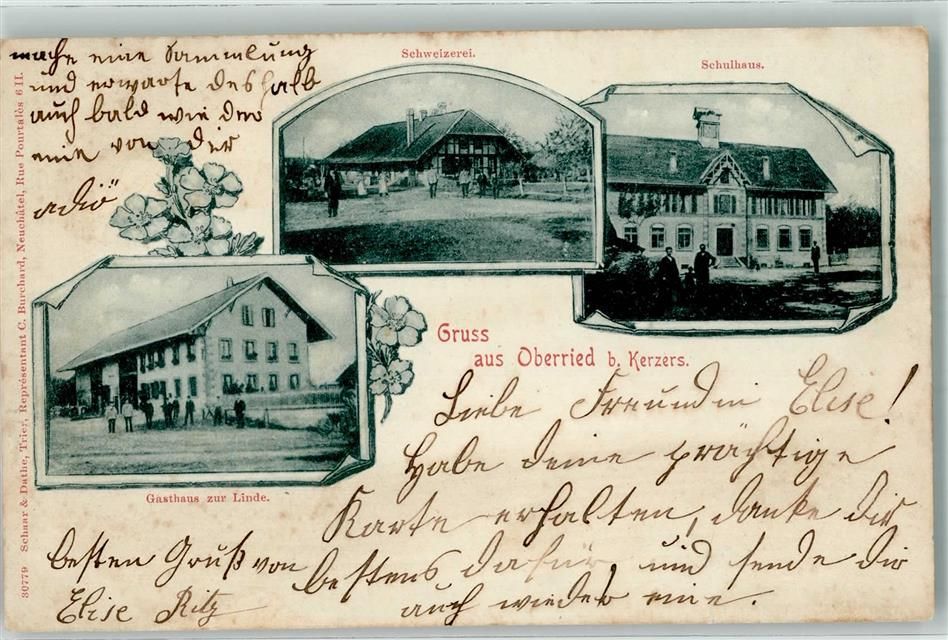 Schweizerei.
Schulhaus.
Gasthaus zur Linde.
Gruss
aus Oberried b. Kerzers.
30779 Schaar & Dathe, Trier, Représentant C. Burchard, Neuchâtel, Rue Pourtalès 6 II.
Liebe Freundin Elise!
Habe deine prächtige
Karte erhalten, danke dir
bestens dafür, und sende dir
auch wieder eine.
mache eine Sammlung
und erwarte deshalb
auch bald wieder
eine von dir
adiö
besten Gruß von
Elise Ritz